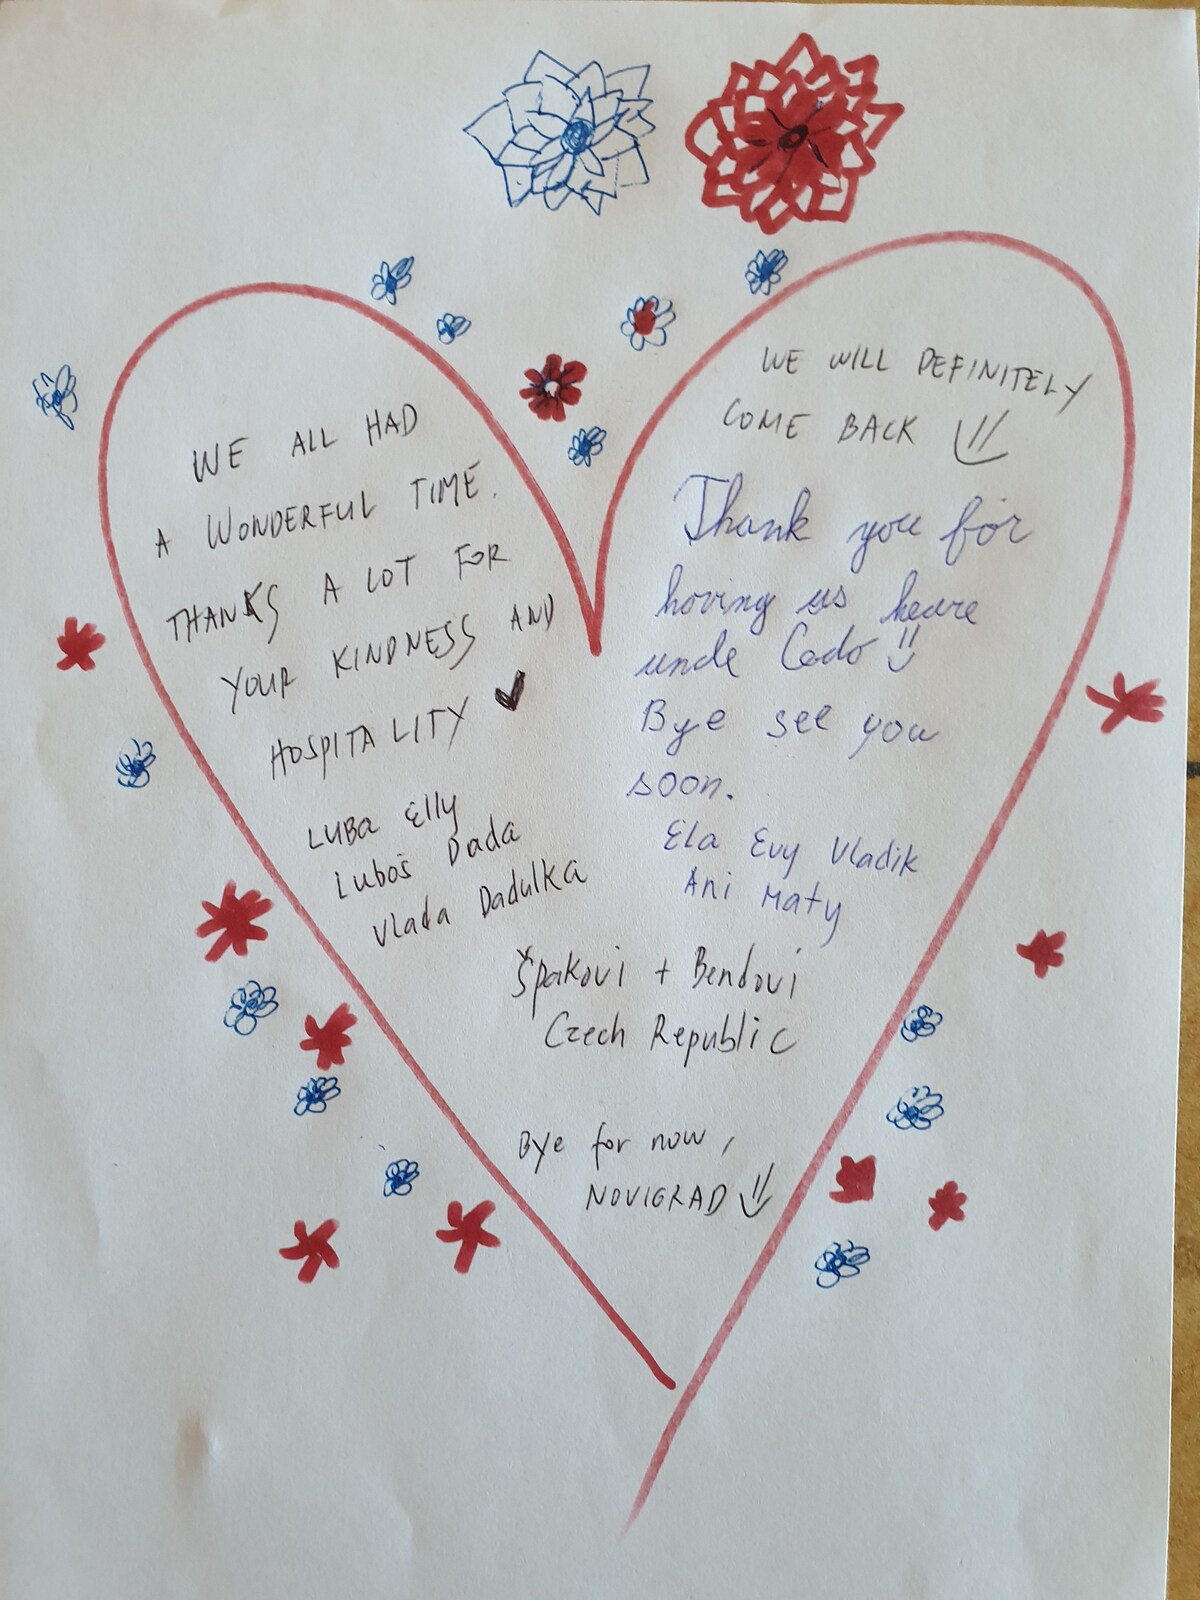 WE ALL HAD
A WONDERFUL TIME.
THANKS A LOT FOR
YOUR KINDNESS AND
HOSPITALITY ♥
LUBA Elly
Luboš Dada
Vlada Dadulka
WE WILL DEFINITELY
COME BACK
Thank you for
hoving us heare
uncle Cedo
Bye see you
soon.
Ela Evy Vladik
Ani Maty
Špakovi + Bendovi
Czech Republic
Bye for now,
NOVIGRAD